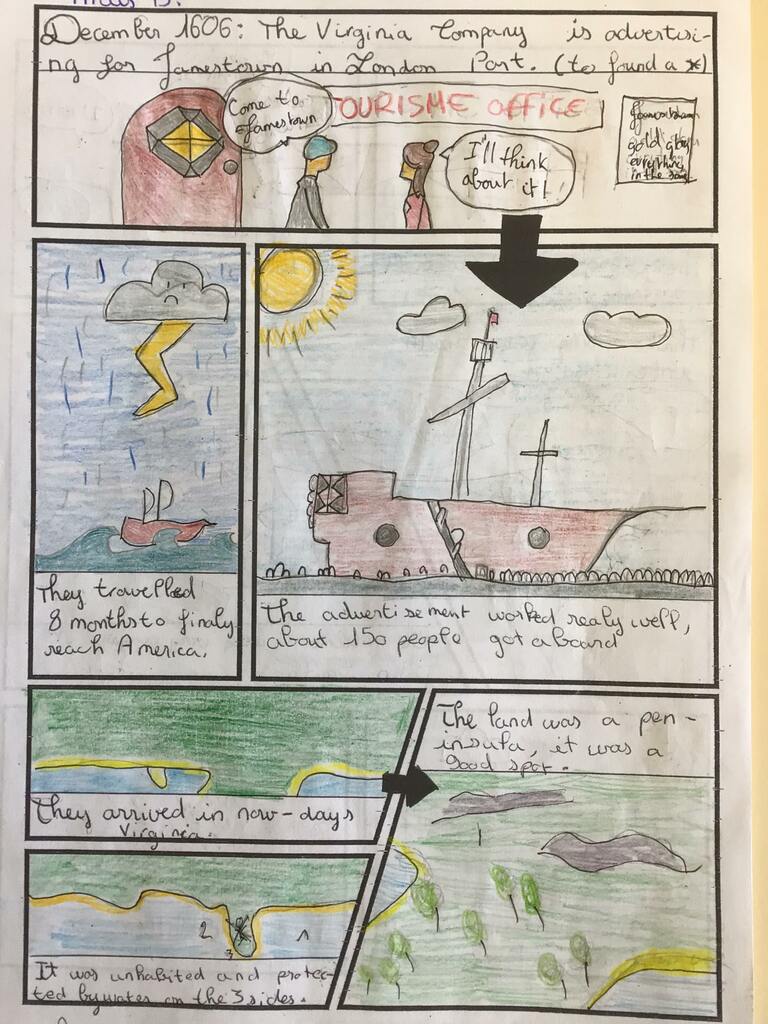 December 1606: The Virginia Company is advertisi-
ng for Jamestown in London Port. (to found a *)
Come to
Jamestown
OURISME OFFICE
I'll think
about it!
gold
everything
in the
They travelled
8 months to finaly
reach America.
The advertisement worked realy well,
about 150 people got aboard
They arrived in now-days
Virginia.
The land was a pen-
insula, it was a
good spot.
2
1
3
It was unhabited and protec-
ted by water on the 3 sides.